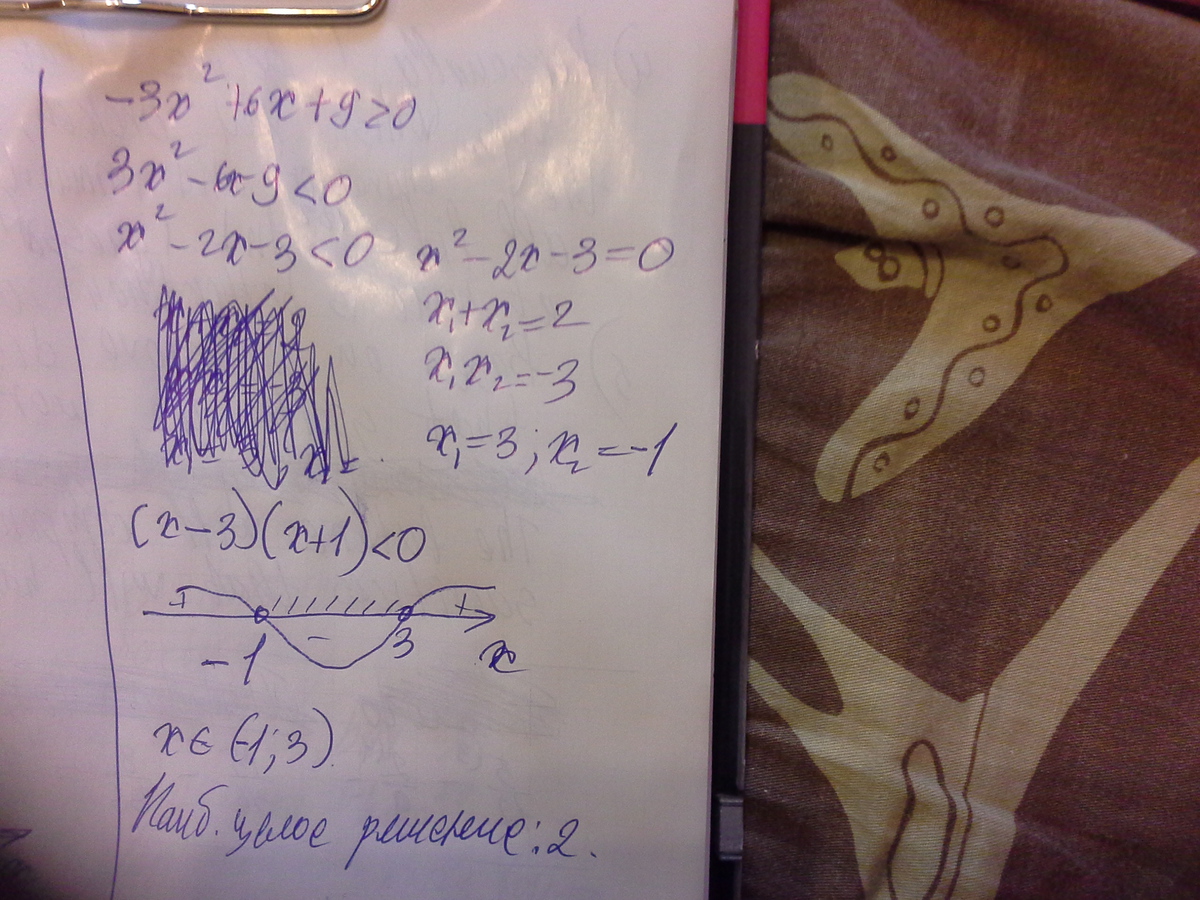 -3x² + 6x + 9 > 0
3x² - 6x - 9 < 0
x² - 2x - 3 < 0
x² - 2x - 3 = 0
x₁ + x₂ = 2
x₁x₂ = -3
x₁ = 3; x₂ = -1
(x - 3)(x + 1) < 0
+ - +
-1 3 x
x ∈ (-1; 3)
Наиб. целое решение: 2.